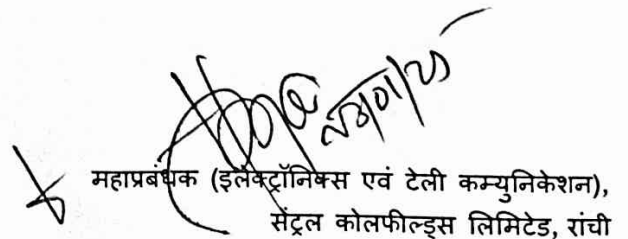 महाप्रबंधक (इलेक्ट्रॉनिक्स एवं टेली कम्युनिकेशन),
सेंट्रल कोलफील्ड्स लिमिटेड, रांची